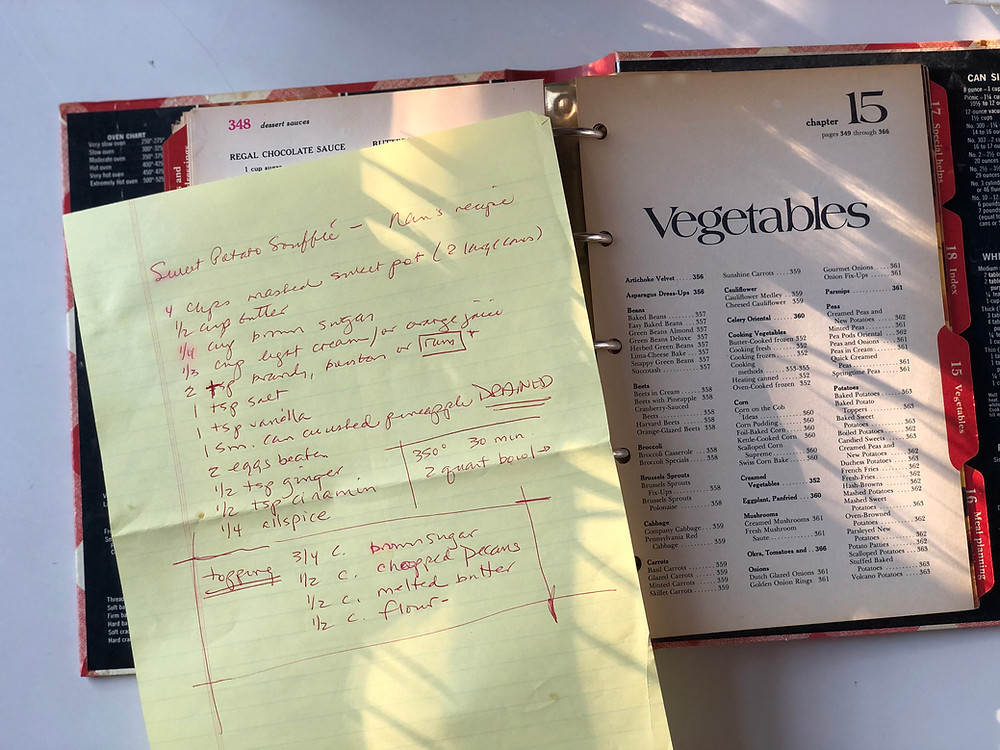 OVEN CHART
Very slow oven 250°-275°
Slow oven
Moderate oven
Hot oven
Very hot oven 450°-
Extremely hot oven 500°-525°
348 dessert sauces
REGAL CHOCOLATE SAUCE
Sweet Potato Soufflé - Nan's recipe
4 cups mashed sweet pot (2 large cans)
1/2 cup butter
1/4 cup brown sugar
1/3 cup light cream/or orange juice
2 tsp brandy, bourbon or rum
1 tsp salt
1 tsp vanilla
1 sm. can crushed pineapple DRAINED
2 eggs beaten
1/2 tsp ginger
1/2 tsp cinamin
1/4 allspice
350° 30 min
2 quart bowl
topping
3/4 c. brown sugar
1/2 c. chopped pecans
1/2 c. melted butter
1/2 c. flour-
chapter 15
pages 349 through 366
Vegetables
Artichoke Velvet 356
Asparagus Dress-Ups 356
Beans
Baked Beans 357
Easy Baked Beans 357
Green Beans Almond 357
Green Beans Deluxe 357
Herbed Green Beans 357
Lima-Cheese Bake 357
Snappy Green Beans 357
Succotash 357
Beets
Beets in Cream 358
Beets with Pineapple 358
Cranberry-Sauced
Beets 358
Harvard Beets 358
Orange-Glazed Beets 358
Broccoli
Broccoli Casserole 358
Broccoli Specials 358
Brussels Sprouts
Brussels Sprouts
Fix-Ups 358
Brussels Sprouts
Polonaise 358
Cabbage
Company Cabbage 359
Pennsylvania Red
Cabbage 359
Carrots
Basil Carrots 359
Glazed Carrots 359
Minted Carrots 359
Skillet Carrots 359
Sunshine Carrots 359
Cauliflower
Cauliflower Medley 359
Cheesed Cauliflower 359
Celery Oriental 360
Cooking Vegetables
Butter-Cooked frozen 352
Cooking fresh 352
Cooking frozen 352
Cooking
methods 353-355
Heating canned 352
Oven-Cooked frozen 352
Corn
Corn on the Cob
Ideas 360
Corn Pudding 360
Foil-Baked Corn 360
Kettle-Cooked Corn 360
Scalloped Corn
Supreme 360
Swiss Corn Bake 360
Creamed
Vegetables 352
Eggplant, Panfried 360
Mushrooms
Creamed Mushrooms 361
Fresh Mushroom
Saute 361
Okra, Tomatoes and 366
Onions
Dutch Glazed Onions 361
Golden Onion Rings 361
Gourmet Onions 361
Onion Fix-Ups 361
Parsnips 361
Peas
Creamed Peas and
New Potatoes 362
Minted Peas 361
Pea Pods Oriental 362
Peas and Onions 361
Peas in Cream 361
Quick Creamed
Peas 361
Springtime Peas 361
Potatoes
Baked Potatoes 363
Baked Potato
Toppers 363
Baked Sweet
Potatoes 363
Boiled Potatoes 362
Candied Sweets 363
Creamed Peas and
New Potatoes 362
Duchess Potatoes 362
French Fries 362
Fresh-Fries 362
Hash-Browns 362
Mashed Potatoes 362
Mashed Sweet
Potatoes 363
Oven-Browned
Potatoes 362
Parsleyed New
Potatoes 362
Potato Patties 362
Scalloped Potatoes 363
Stuffed Baked
Potatoes 363
Volcano Potatoes 363
17 Special helps
18 Index
15 Vegetables
16 Meal planning
CAN SI